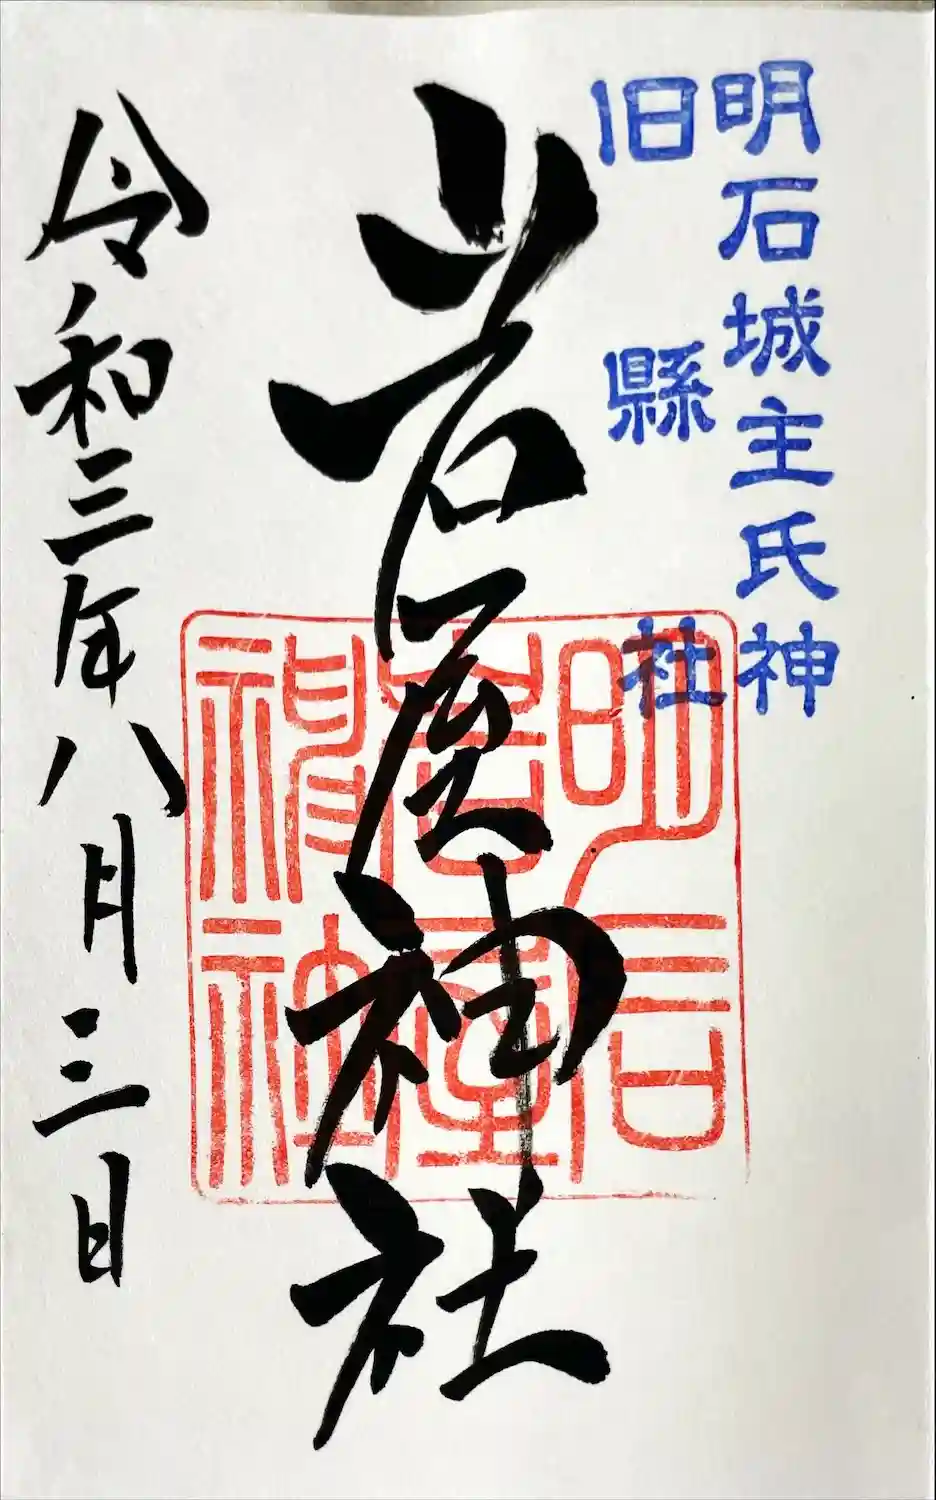 明石城主氏神
旧縣社
岩屋神社
明石
岩屋
神社
令和三年八月三日